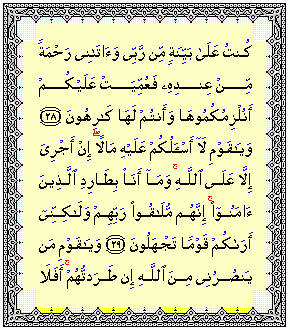 كُنتُ عَلَىٰ بَيِّنَةٍ مِّن رَّبِّى وَءَاتَىٰنِى رَحْمَةً
مِّنْ عِندِهِۦ فَعُمِّيَتْ عَلَيْكُمْ
أَنُلْزِمُكُمُوهَا وَأَنتُمْ لَهَا كَٰرِهُونَ ﴿٢٨﴾
وَيَٰقَوْمِ لَآ أَسْـَٔلُكُمْ عَلَيْهِ مَالًا ۖ إِنْ أَجْرِىَ
إِلَّا عَلَى ٱللَّهِ ۚ وَمَآ أَنَا۠ بِطَارِدِ ٱلَّذِينَ
ءَامَنُوٓا۟ ۚ إِنَّهُم مُّلَٰقُوا۟ رَبِّهِمْ وَلَٰكِنِّىٓ
أَرَىٰكُمْ قَوْمًا تَجْهَلُونَ ﴿٢٩﴾ وَيَٰقَوْمِ مَن
يَنصُرُنِى مِنَ ٱللَّهِ إِن طَرَدتُّهُمْ ۚ أَفَلَا